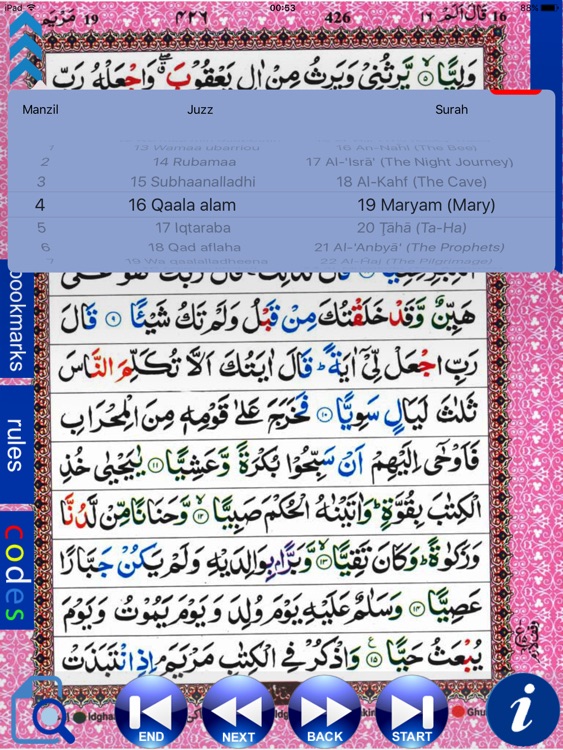 iPad 00:53 88%
19 مَرْيَم ٤٢٦ 426 قَالَ اَلَمْ ١٦ 16
وَلِيًّا ۙ ٥ يَّرِثُنِىْ وَيَرِثُ مِنْ اٰلِ يَعْقُوْبَ ۖ وَاجْعَلْهُ رَبِّ
Manzil Juzz Surah
1 13 Wamaa ubarriou 16 An-Nahl (The Bees)
2 14 Rubamaa 17 Al-'Isrā' (The Night Journey)
3 15 Subhaanalladhi 18 Al-Kahf (The Cave)
4 16 Qaala alam 19 Maryam (Mary)
5 17 Iqtaraba 20 Ţāhā (Ta-Ha)
6 18 Qad aflaha 21 Al-'Anbyā' (The Prophets)
7 19 Wa qaalalladheena 22 Al-Hajj (The Pilgrimage)
هَيِّنٌ وَّقَدْ خَلَقْتُكَ مِنْ قَبْلُ وَلَمْ تَكُ شَيْئًا ٩ قَالَ
رَبِّ اجْعَلْ لِّىْٓ اٰيَةً ؕ قَالَ اٰيَتُكَ اَلَّا تُكَلِّمَ النَّاسَ
ثَلٰثَ لَيَالٍ سَوِيًّا ١٠ فَخَرَجَ عَلٰى قَوْمِهٖ مِنَ الْمِحْرَابِ
فَاَوْحٰٓى اِلَيْهِمْ اَنْ سَبِّحُوْا بُكْرَةً وَّعَشِيًّا ١١ يٰيَحْيٰى خُذِ
الْكِتٰبَ بِقُوَّةٍ ؕ وَاٰتَيْنٰهُ الْحُكْمَ صَبِيًّا ۙ ١٢ وَّحَنَانًا مِّنْ لَّدُنَّا
وَزَكٰوةً ؕ وَكَانَ تَقِيًّا ۙ ١٣ وَّبَرًّۢا بِوَالِدَيْهِ وَلَمْ يَكُنْ جَبَّارًا
عَصِيًّا ١٤ وَسَلٰمٌ عَلَيْهِ يَوْمَ وُلِدَ وَيَوْمَ يَمُوْتُ وَيَوْمَ
يُبْعَثُ حَيًّا ١٥ وَاذْكُرْ فِى الْكِتٰبِ مَرْيَمَ اِذِ انْتَبَذَتْ
bookmarks
rules
codes
END NEXT BACK START
i